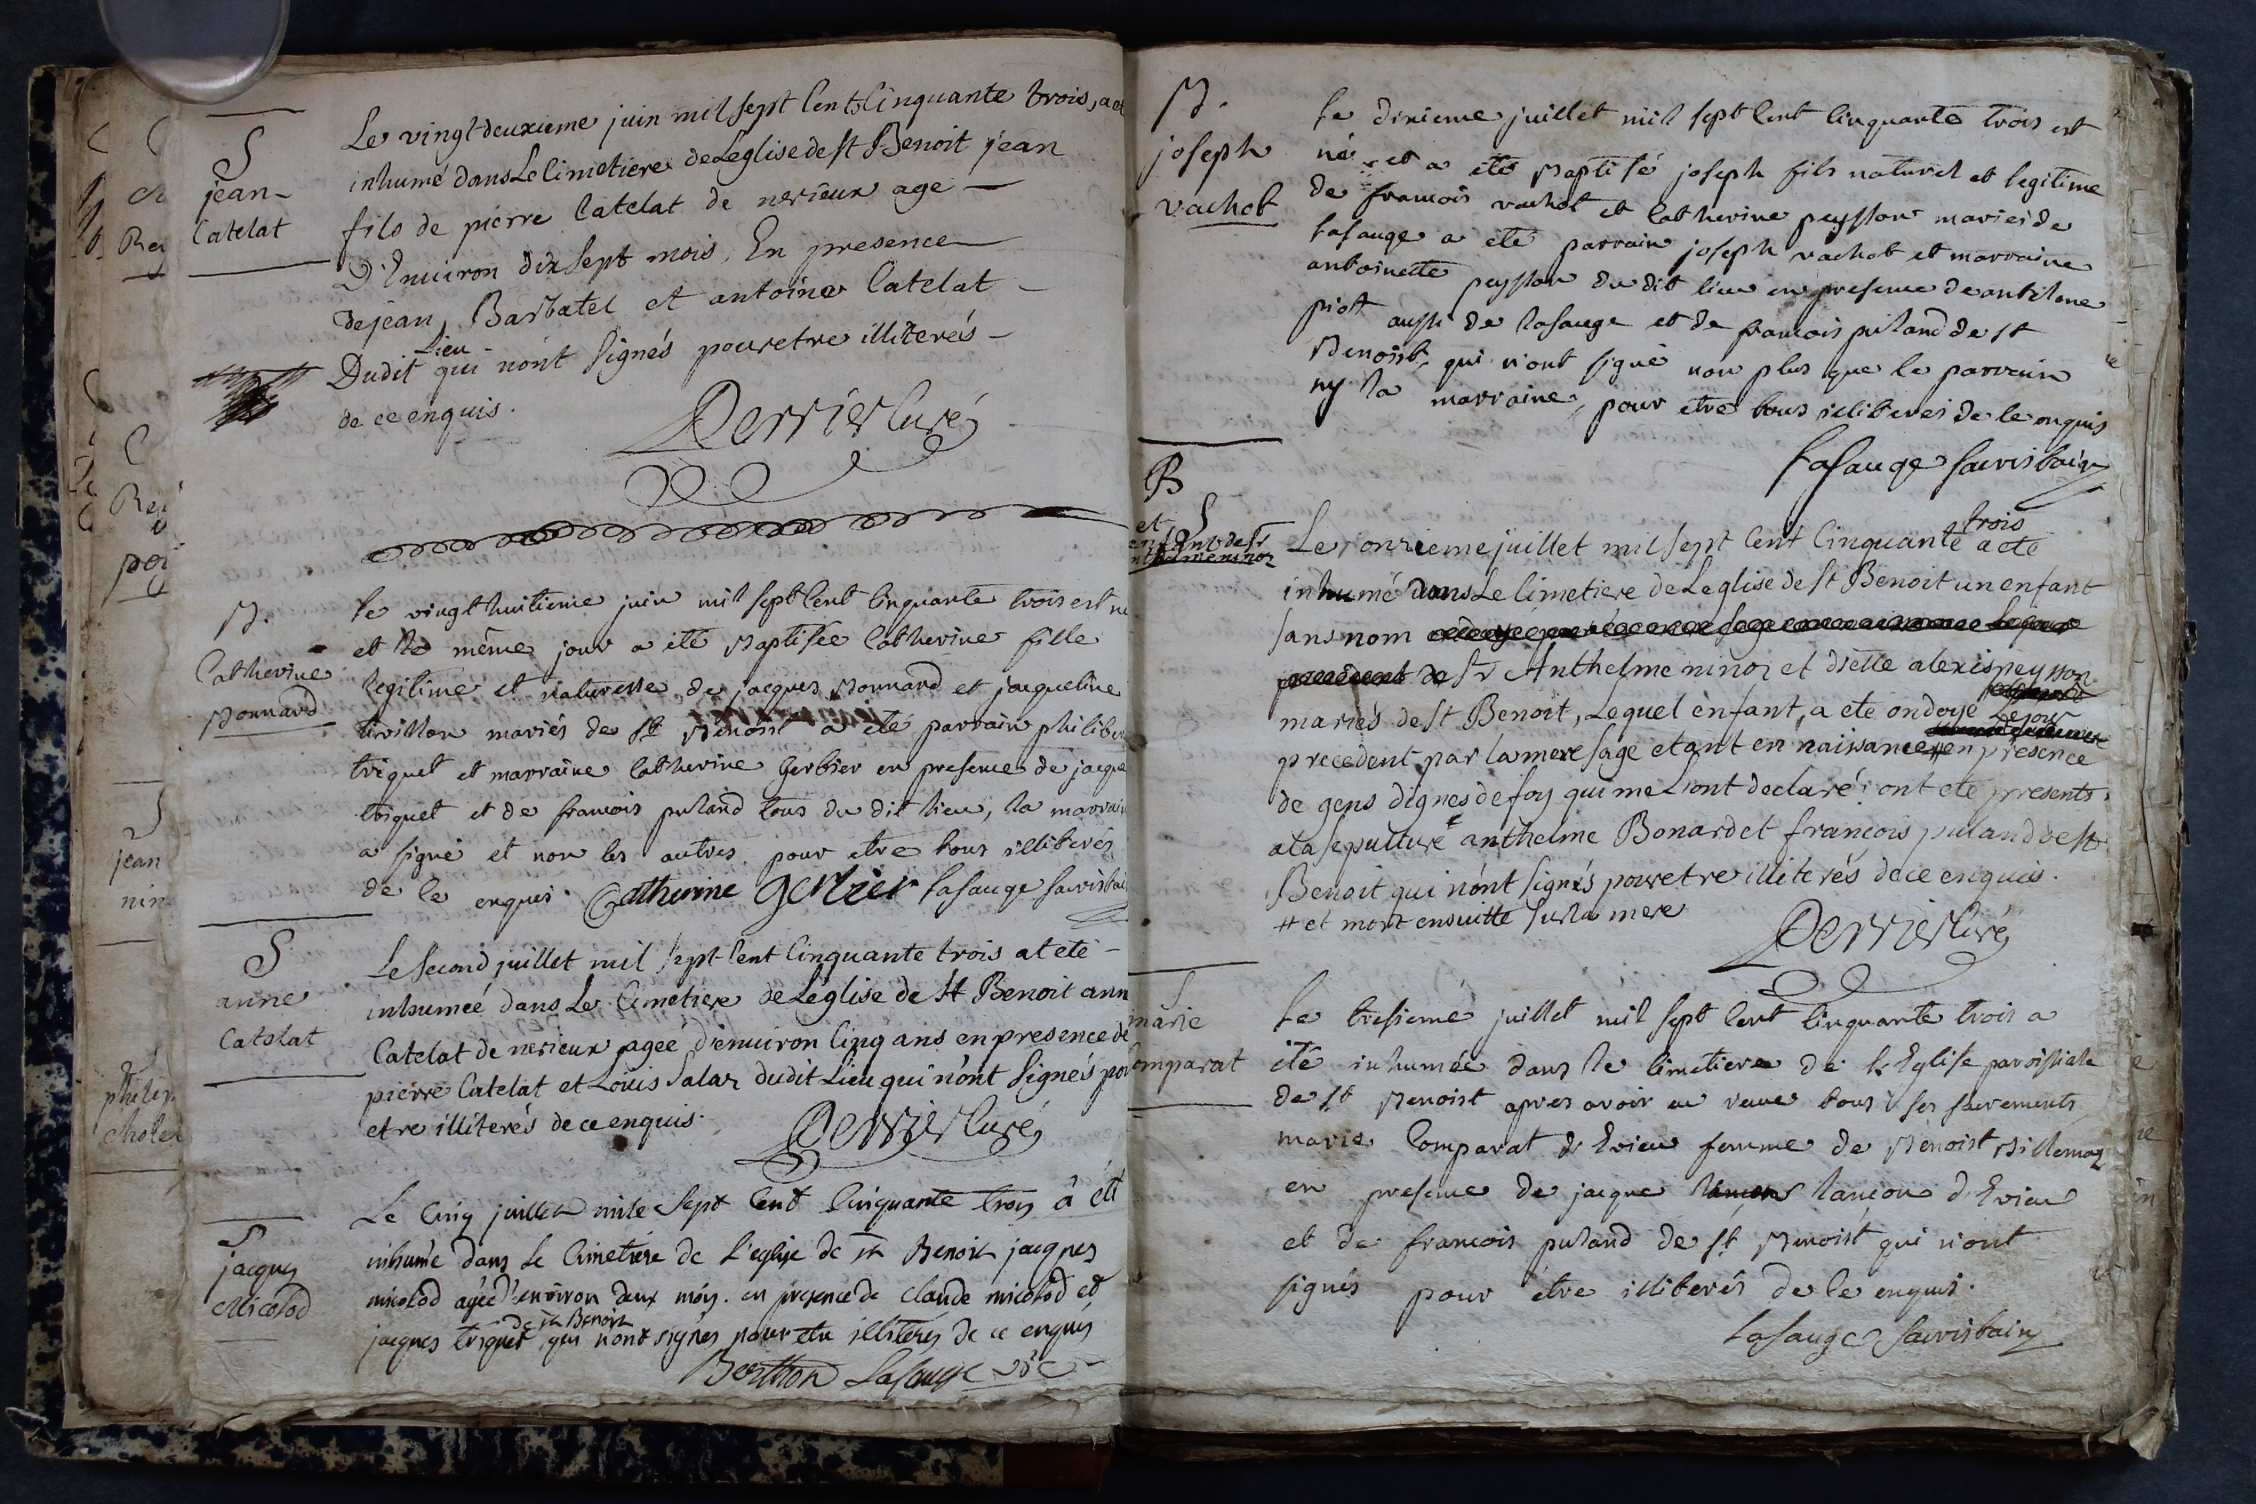 S
jean
Catelat
Le vingt deuxieme juin mil sept Cent Cinquante trois, a eté
inhumé dans Le Cimetiere de Leglise de St Benoit jean
fils de pierre Catelat de nerieux age
D'Environ dix sept mois, En presence
de jean Barbatel et antoine Catelat
Lieu
Dudit qui n'ont Signés pour etre illiterés
de ce enquis.
Perrier Curé
B.
Catherine
Bonnard
Le vingt huitieme juin mil sept Cent Cinquante trois est né
et le même jour a été Baptisée Catherine fille
legitime et naturelle de jacques Bonnard et jacqueline
trillon mariés de St Benoist a été parrain philiber
triquet et marraine Catherine Gerbier en presence de jacque
triquet et de francois puland tous du dit lieu, la marrain
a signé et non les autres pour etre tous illiterés
de ce enquis. Catherine gerbier Lasauge sacristain
S
anne
Catelat
Le Second juillet mil sept Cent Cinquante trois at eté
inhumée dans Le Cimetiere de Léglise de St Benoit ann
Catelat de nerieux agée d'environ Cinq ans en presence de
pierre Catelat et Louis Salar dudit Lieu qui n'ont Signés pou
etre illiterés de ce enquis.
Perrier Curé
S
jacques
Micolod
Le Cinq juillet mile Sept Cent Cinquante trois à été
inhumé dans Le Cimetiere de L'eglise de St Benoit jacques
micolod agée d'environ deux mois. en presence de Claude micolod et
de St Benoit
jacques triquet qui n'ont signés pour etre illiterés de ce enquis
Berthon Lasauge vic
B.
joseph
vachot
Le dixieme juillet mil sept Cent Cinquante trois est
né et a eté Baptisé joseph fils naturel et legitime
de francois vachot et Catherine peysson mariés de
Lasauge a eté parrain joseph vachot et marraine
antoinette peysson du dit lieu en presence de
piot aussi de Lasauge et de francois puland de St
Benoist, qui n'ont signé non plus que le parrain
ny la marraine, pour etre tous illiterés de ce enquis
Lasauge sacristain
B
et S
enfant de Sr
nthelme ninoz
trois
Le onzieme juillet mil sept Cent Cinquante a eté
inhumé dans Le Cimetiere de Leglise de St Benoit un enfant
sans nom
Sr Anthelme ninoz et dlelle alexis peysson
mariés de St Benoit, Lequel enfant, a ete ondoyé Le jour
precedent par la mere sage etant en naissance # en presence
de gens dignes de foy qui me Lont declaré ont eté presents
a la sepulture anthelme Bonard et françois puland de St
Benoit qui n'ont Signés pour etre illiterés de ce enquis.
# et mort ensuitte sur la mere
Perrier Curé
S
marie
omparat
Le tresieme juillet mil sept Cent Cinquante trois a
été inhumée dans le Cimetiere de L'Eglise paroissiale
de St Benoist apres avoir tous ses sacrements
marie Comparat d'Evieu femme de Benoist Billemaz
en presence de jacque lançon d'Evieu
et de francois puland de St Benoist qui n'ont
signés pour être illiterés de ce enquis.
Lasauge Sacristain